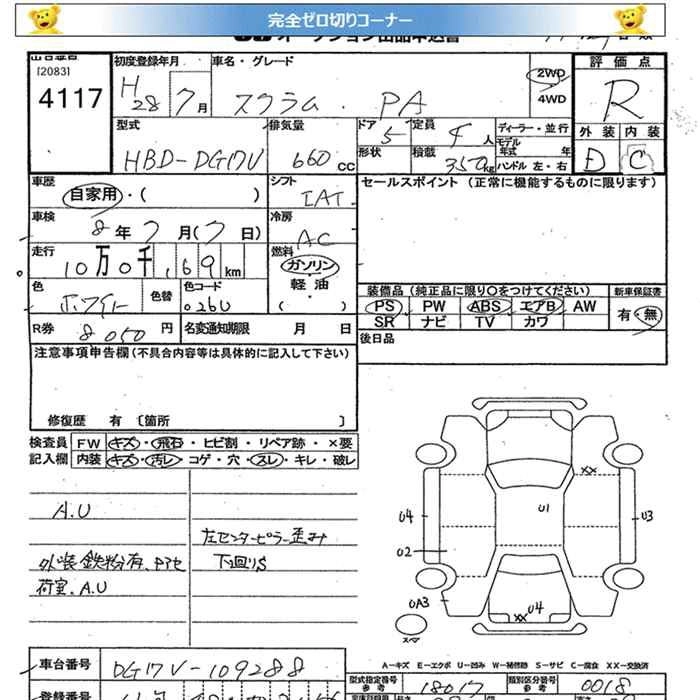 完全ゼロ切りコーナー
[2083]
4117
初度登録年月
H28 7月
車名・グレード
スクラム . PA
2WD
4WD
評価点
R
外装 内装
D C
型式
HBD-DG17V
排気量
660 CC
ドア 5
定員 4 人
形状
積載 350 kg
ディーラー・並行
モデル年式 年
ハンドル 左・右
車歴
自家用・( )
シフト
IAT
セールスポイント (正常に機能するものに限ります)
車検
8年 7月(7日)
冷房
AC
走行
10万0千,169km
燃料
ガソリン・
軽油・
( )
色
ホワイト
色替
色コード
026U
装備品 (純正品に限り○をつけてください)
新車保証書
PS PW ABS エアB AW
有・無
SR ナビ TV カワ
R券 8050 円
名変通知期限 月 日
後日品
注意事項申告欄 (不具合内容等は具体的に記入して下さい)
修復歴 有 〔箇所 〕
検査員 FW キズ・飛石・ヒビ割・リペア跡・×要
記入欄 内装 キズ・汚レ・コゲ・穴・スレ・キレ・破レ
A.U
外装鉄粉有、
荷室、A.U
左センターピラー歪み
下回りS
XX
U1
U4
U3
U2
UA3
XX U4
スペア
A=キズ E=エクボ U=凹み W=補修跡 S=サビ C=腐食 XX=交換済
車台番号
DG17V-109288
型式指定番号
参考
18017
類別区分番号
参考
0018
登録番号